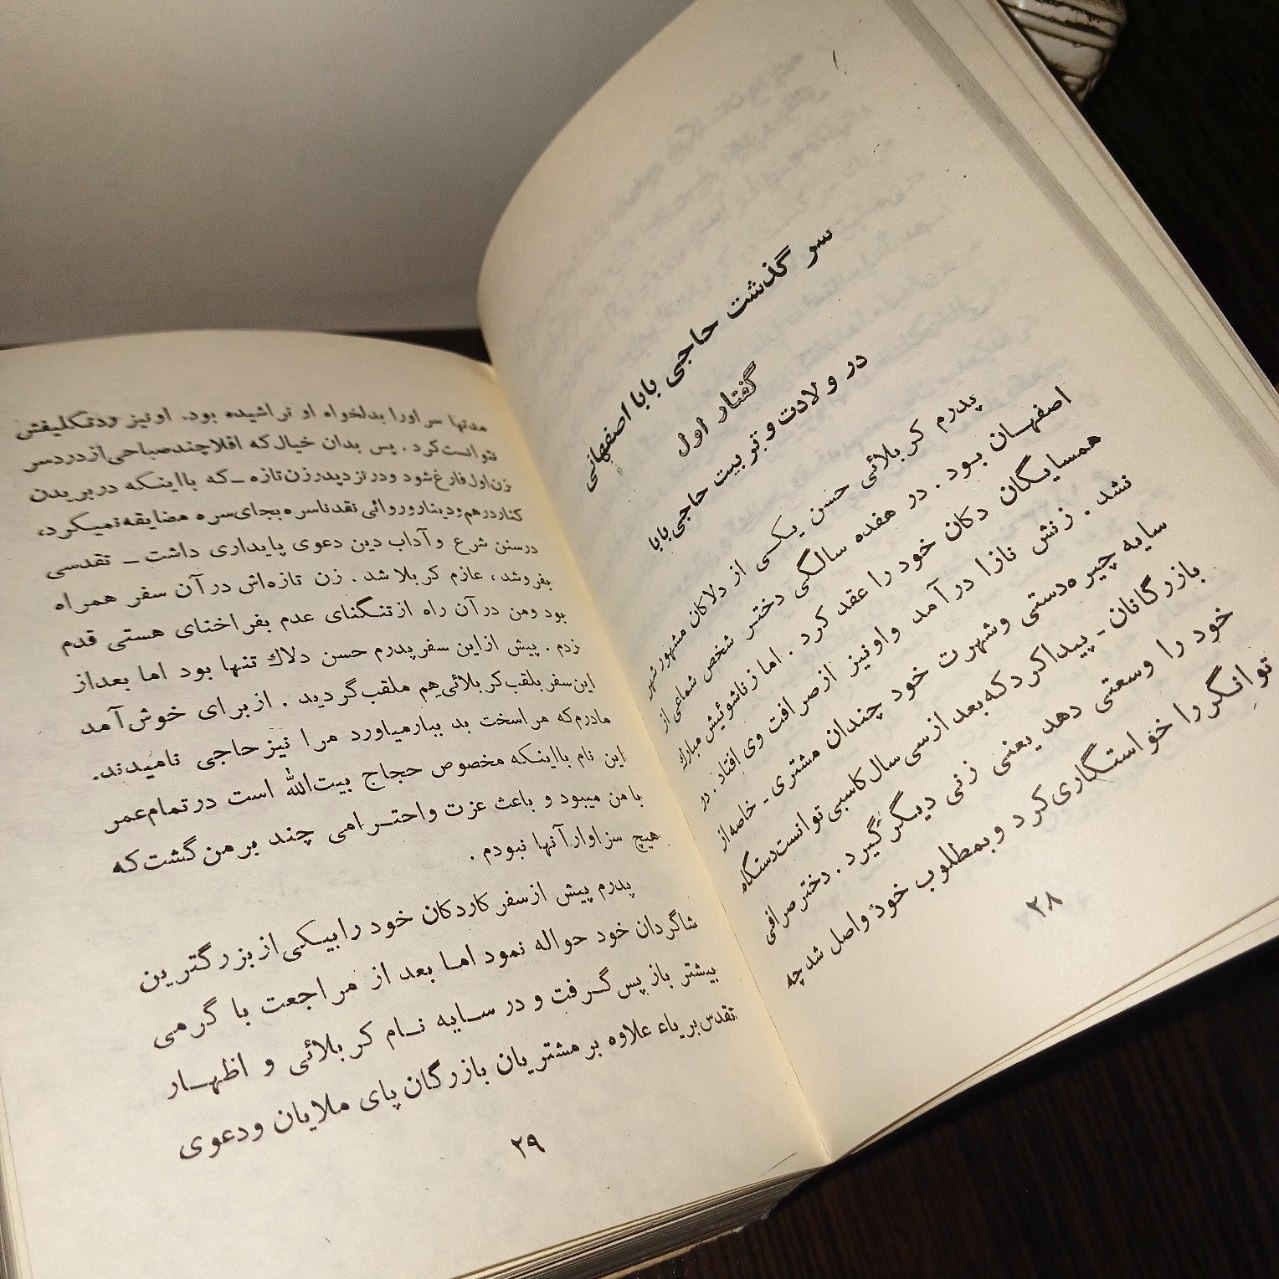 سر گذشت حاجی بابا اصفهانی
گفتار اول
در ولادت و تربیت حاجی بابا
پدرم کربلائی حسن یکی از دلاکان مشهور شهر
اصفهان بود. در هفده سالگی دختر شخص شماعی از
همسایگان دکان خود را عقد کرد. اما زناشوئیش مبارك
نشد. زنش نازا درآمد و اونیز ازصرافت وی افتاد. در
سایه چیره‌دستی وشهرت خود چندان مشتری - خاصه از
بازرگانان - پیداکرد که بعد ازسی سال کاسبی توانست دستگاه
خود را وسعتی دهد یعنی زنی دیگر گیرد. دختر صرافی
توانگر را خواستگاری کرد وبمطلوب خود واصل شد چه
۲۸
مدتها سر اورا بدلخواه او تراشیده بود. اونیز
نتوانست کرد. پس بدان خیال که اقلا چند صباحی از دردسر
زن اول فارغ شود ودر نزد پدر زن تازه - که بااینکه در بریدن
کنار درهم ودینار وروائی نقد ناسره بجای سره مضایقه نمیکرد،
درسنن شرع وآداب دین دعوی پایداری داشت - تقدسی
بفروشد، عازم کربلا شد. زن تازه‌اش درآن سفر همراه
بود ومن درآن راه ازتنگنای عدم بفراخنای هستی قدم
زدم. پیش ازاین سفر پدرم حسن دلاك تنها بود اما بعداز
این سفر بلقب کربلائی هم ملقب گردید. ازبرای خوش آمد
مادرم که مراسخت بد ببارمیاورد مرا نیز حاجی نامیدند.
این نام بااینکه مخصوص حجاج بیت‌الله است درتمام عمر
بامن میبود و باعث عزت واحترامی چند برمن گشت که
هیچ سزاوارآنها نبودم.
پدرم پیش ازسفر کاردکان خود رابیکی ازبزرگترین
شاگردان خود حواله نمود اما بعد از مراجعت با گرمی
بیشتر بازپس گرفت و در سایه نام کربلائی و اظهار
تقدس بریاء علاوه بر مشتریان بازرگان پای ملایان ودعوی
۲۹